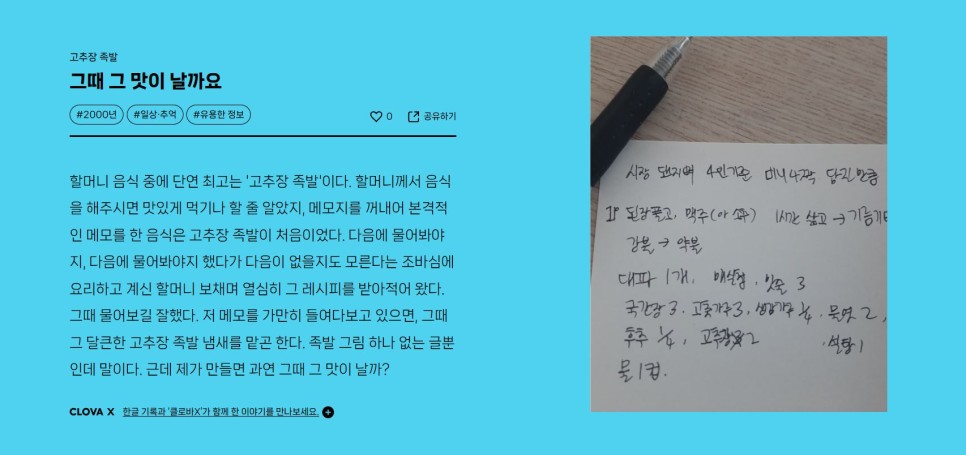 고추장 족발
그때 그 맛이 날까요
#2000년 #일상·추억 #유용한 정보
0 공유하기
할머니 음식 중에 단연 최고는 '고추장 족발'이다. 할머니께서 음식
을 해주시면 맛있게 먹기나 할 줄 알았지, 메모지를 꺼내어 본격적
인 메모를 한 음식은 고추장 족발이 처음이었다. 다음에 물어봐야
지, 다음에 물어봐야지 했다가 다음이 없을지도 모른다는 조바심에
요리하고 계신 할머니 보채며 열심히 그 레시피를 받아적어 왔다.
그때 물어보길 잘했다. 저 메모를 가만히 들여다보고 있으면, 그때
그 달큰한 고추장 족발 냄새를 맡곤 한다. 족발 그림 하나 없는 글뿐
인데 말이다. 근데 제가 만들면 과연 그때 그 맛이 날까?
CLOVA X 한글 기록과 '클로바X'가 함께 한 이야기를 만나보세요.
시장 돼지 4인기준 미니 족 담긴 만큼
된장풀고, 맥주 1시간 삶고 →
강불 → 약불
대파 1개, 매실청, 3
국간장 3, 고춧가루 3, 생강가루 1/4, 물엿 2,
후추 1/4, 고추장 2 설탕 1
물 1컵.